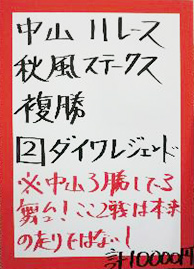 中山 11レース
秋風ステークス
複勝
2 ダイワレジェンド
※中山3勝してる
舞台！ここ2戦は本来
の走りそばない！
計10000円